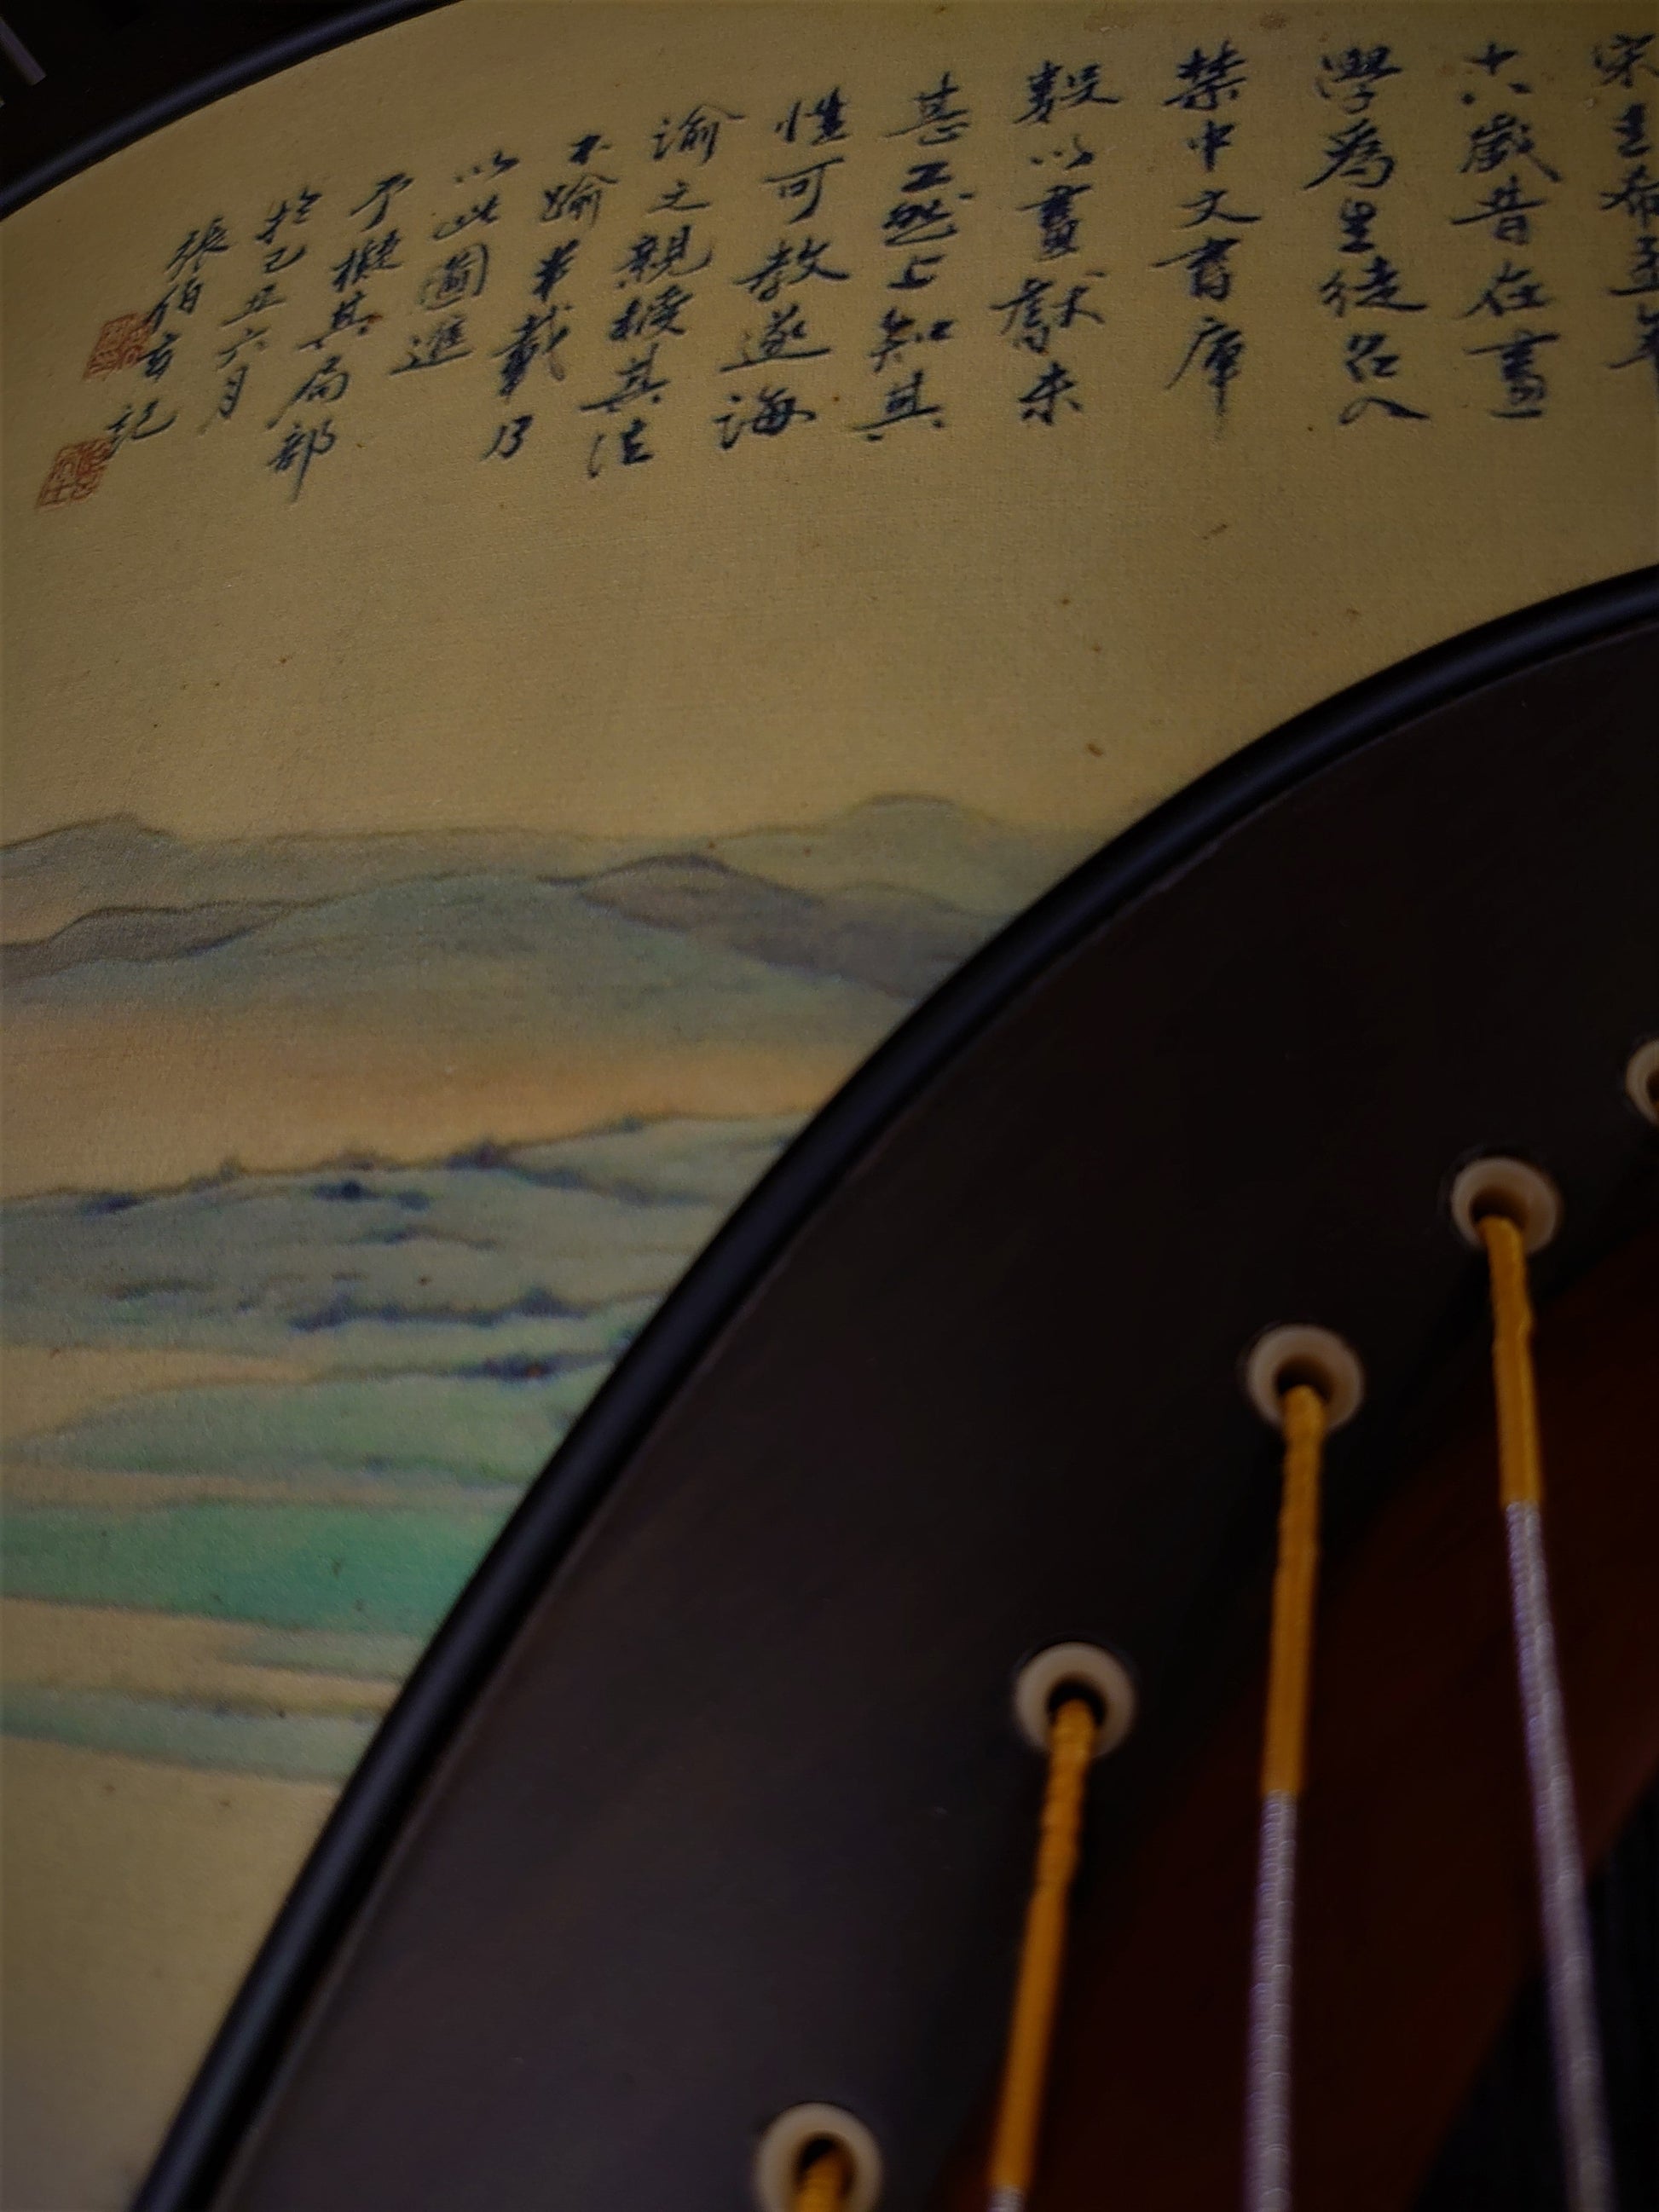 宋王希孟年
十八歲昔在畫
學爲生徒召入
禁中文書庫
數以畫獻未
甚工然上知其
性可教遂誨
諭之親授其法
不踰半載乃
以此圖進
予擬其局部
於己丑六月
張伯玄記